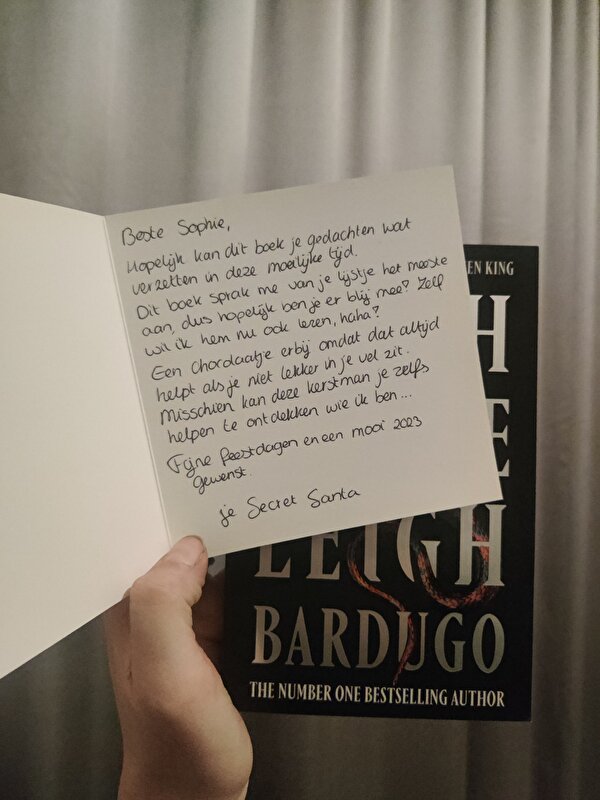 Beste Sophie,
Hopelijk kan dit boek je gedachten wat
verzetten in deze moeilijke tijd.
Dit boek sprak me van je lijstje het meeste
aan, dus hopelijk ben je er blij mee? Zelf
wil ik hem nu ook lezen, haha?
Een chordlaatje erbij omdat dat altijd
helpt als je niet lekker in je vel zit.
Misschien kan deze kerstman je zelfs
helpen te ontdekken wie ik ben...
Fijne feestdagen en een mooi 2023
gewenst.
je Secret Santa
EN KING
H
E
LEIGH
BARDUGO
THE NUMBER ONE BESTSELLING AUTHOR